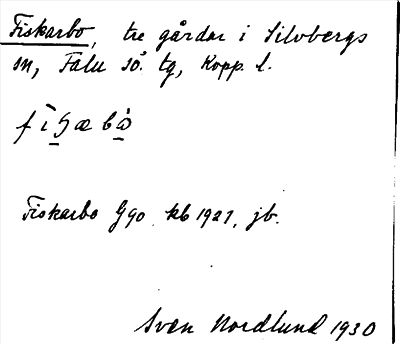 Fiskarbo, tre gårdar i Silvbergs
sn, Falu sö. tg, Kopp. l.
Fiskarbo G90 kb 1921, jb.
Sven Nordlund 1930